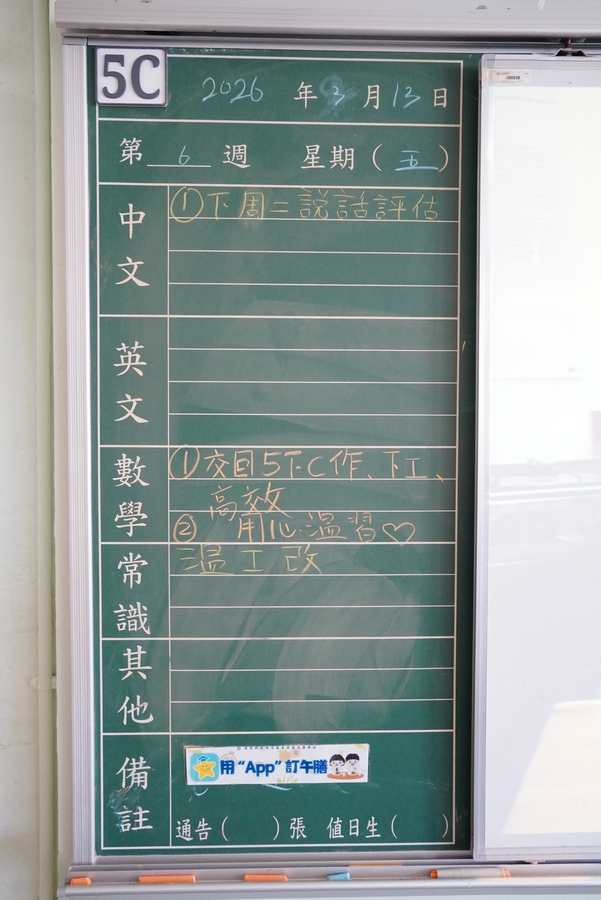 5C
2026年3月13日
第 6 週 星期(五)
中文
①下周二說話評估
英文
數學
①交回5下C作、下工、
高效
② 用心溫習♡
常識
溫工改
其他
備註
用“App”訂午膳
通告( )張 值日生( )